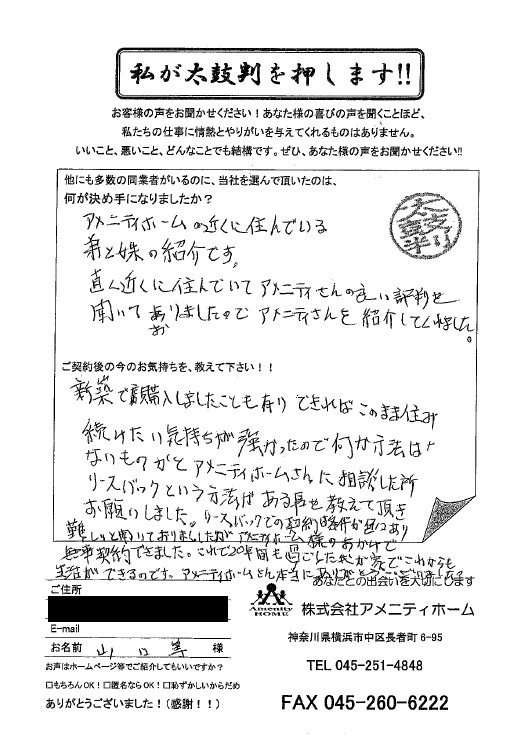 私が太鼓判を押します!!
お客様の声をお聞かせください！あなた様の喜びの声を聞くことほど、
私たちの仕事に情熱とやりがいを与えてくれるものはありません。
いいこと、悪いこと、どんなことでも結構です。ぜひ、あなた様の声をお聞かせください!!
他にも多数の同業者がいるのに、当社を選んで頂いたのは、
何が決め手になりましたか？
太鼓判
アメニティホームの近くに住んでいる
弟と妹の紹介です。
直ぐ近くに住んでいて アメニティさんの良い評判を
聞いておりましたので アメニティさんを紹介してくれました。
ご契約後の今のお気持ちを、教えて下さい！！
新築で購入しましたことも有り できればこのまま住み
続けたい気持ちが強かったので何か方法は
ないものかとアメニティホームさんに相談した所
リースバックという方法がある事を教えて頂き
お願いしました。リースバックでの契約は条件が色々あり
難しいと聞いておりましたが アメニティホーム様のおかげで
無事契約できました。これで20年間も過ごした我が家でこれからも
生活ができるのです。アメニティホームさん本当にありがとうございました
あなたとの出会いを大切にします
ご住所
E-mail
お名前 山口 等 様
Amenity HOME
株式会社アメニティホーム
神奈川県横浜市中区長者町 6-95
お声はホームページ等でご紹介してもいいですか？
TEL 045-251-4848
□もちろんOK！□匿名ならOK！□恥ずかしいからだめ
ありがとうございました！（感謝！！）
FAX 045-260-6222